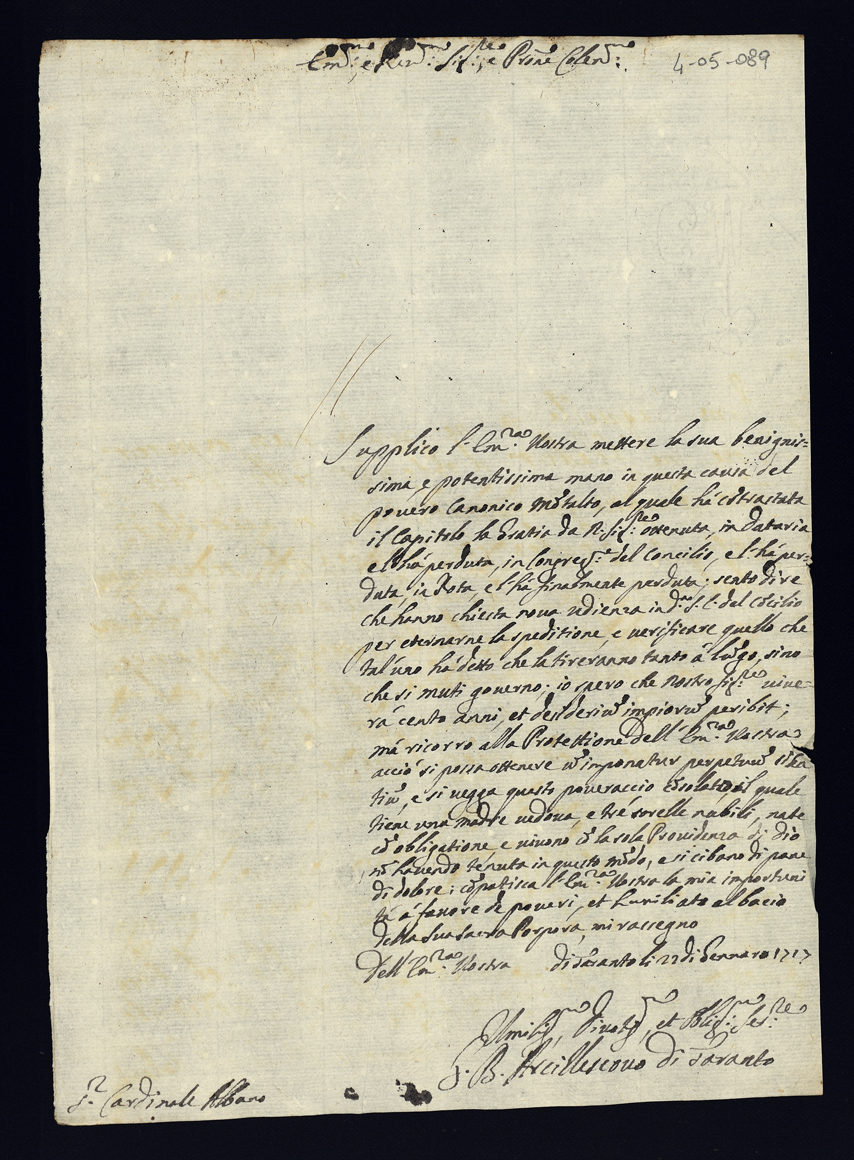 Em.mo e Rev.mo Sig.re, e Prōne Colend.mo
4-05-089
Supplico l'Em.za Vostra mettere la sua benignis=
sima, e potentissima mano in questa causa del
povero Canonico Mōtalto, al quale hà cōtrastata
il Capitolo la Gratia da N. Sig.re ottenuta, in Dataria
e l'hà perduta, in Congreg.e del Concilio, e l'hà per=
duta, in Rota, e l'hà finalmente perduta; sento dire
che hanno chiesta nova udienza in d.a S. C. del Cōcilio
per eternarne la speditione, e verificare quello che
tal'uno hà detto che la tireranno tanto à lūgo, sino
che si muti governo; io spero che Nostro Sig.re vive=
rà cento anni, et desideriū impiorū peribit;
mà ricorro alla Protettione dell'Em.za Vostra
acciò si possa ottenere ut imponatur perpetuū silē
tiū, e si vegga questo poveraccio cōsolato, il quale
tiene una madre vedova, e trè sorelle nubili, nate
cō obligatione e vivono cō la sola Providenza di Dio
nō havendo tenuta in questo mōdo, e si cibano di pane
di dolore; cōpatisca l'Em.za Vostra la mia importuni
tà à favore de poveri, et humiliato al bacio
della sua sacra Porpora, mi rassegno
Dell'Em.za Vostra di Tarāto li 22 di Gennaro 1717
Umiliss.mo, Divotiss.mo, et Oblig.mo Ser.re
G. B. Arcivescovo di Taranto
S.r Cardinale Albano